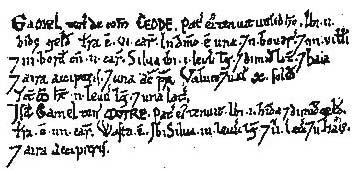 GAMEL ten de com CEDDE. Pat ei tenuit ut lib ho. Ibi ii
hidę geld. Tra ē. vi. car. In dnio ē una 7 ii. bouar 7 iii. uilli
7 iii. bord cu. ii. car. Silua ibi. i. leuu lg 7 dimid lat 7 haia
7 aira accipitris. 7 una ac pti. Valuit 7 ual x. solid
hb. ii. leuu lg 7 una lat.
Isd Gamel ten MOTRE. Pat ei tenuit. Ibi. i. hida 7 dimid geld.
Tra ē. iiii. car. Wasta ē. Ibi Silua. iii. leuu lg 7 ii. lat 7 ii. haię
7 aira accipitris.